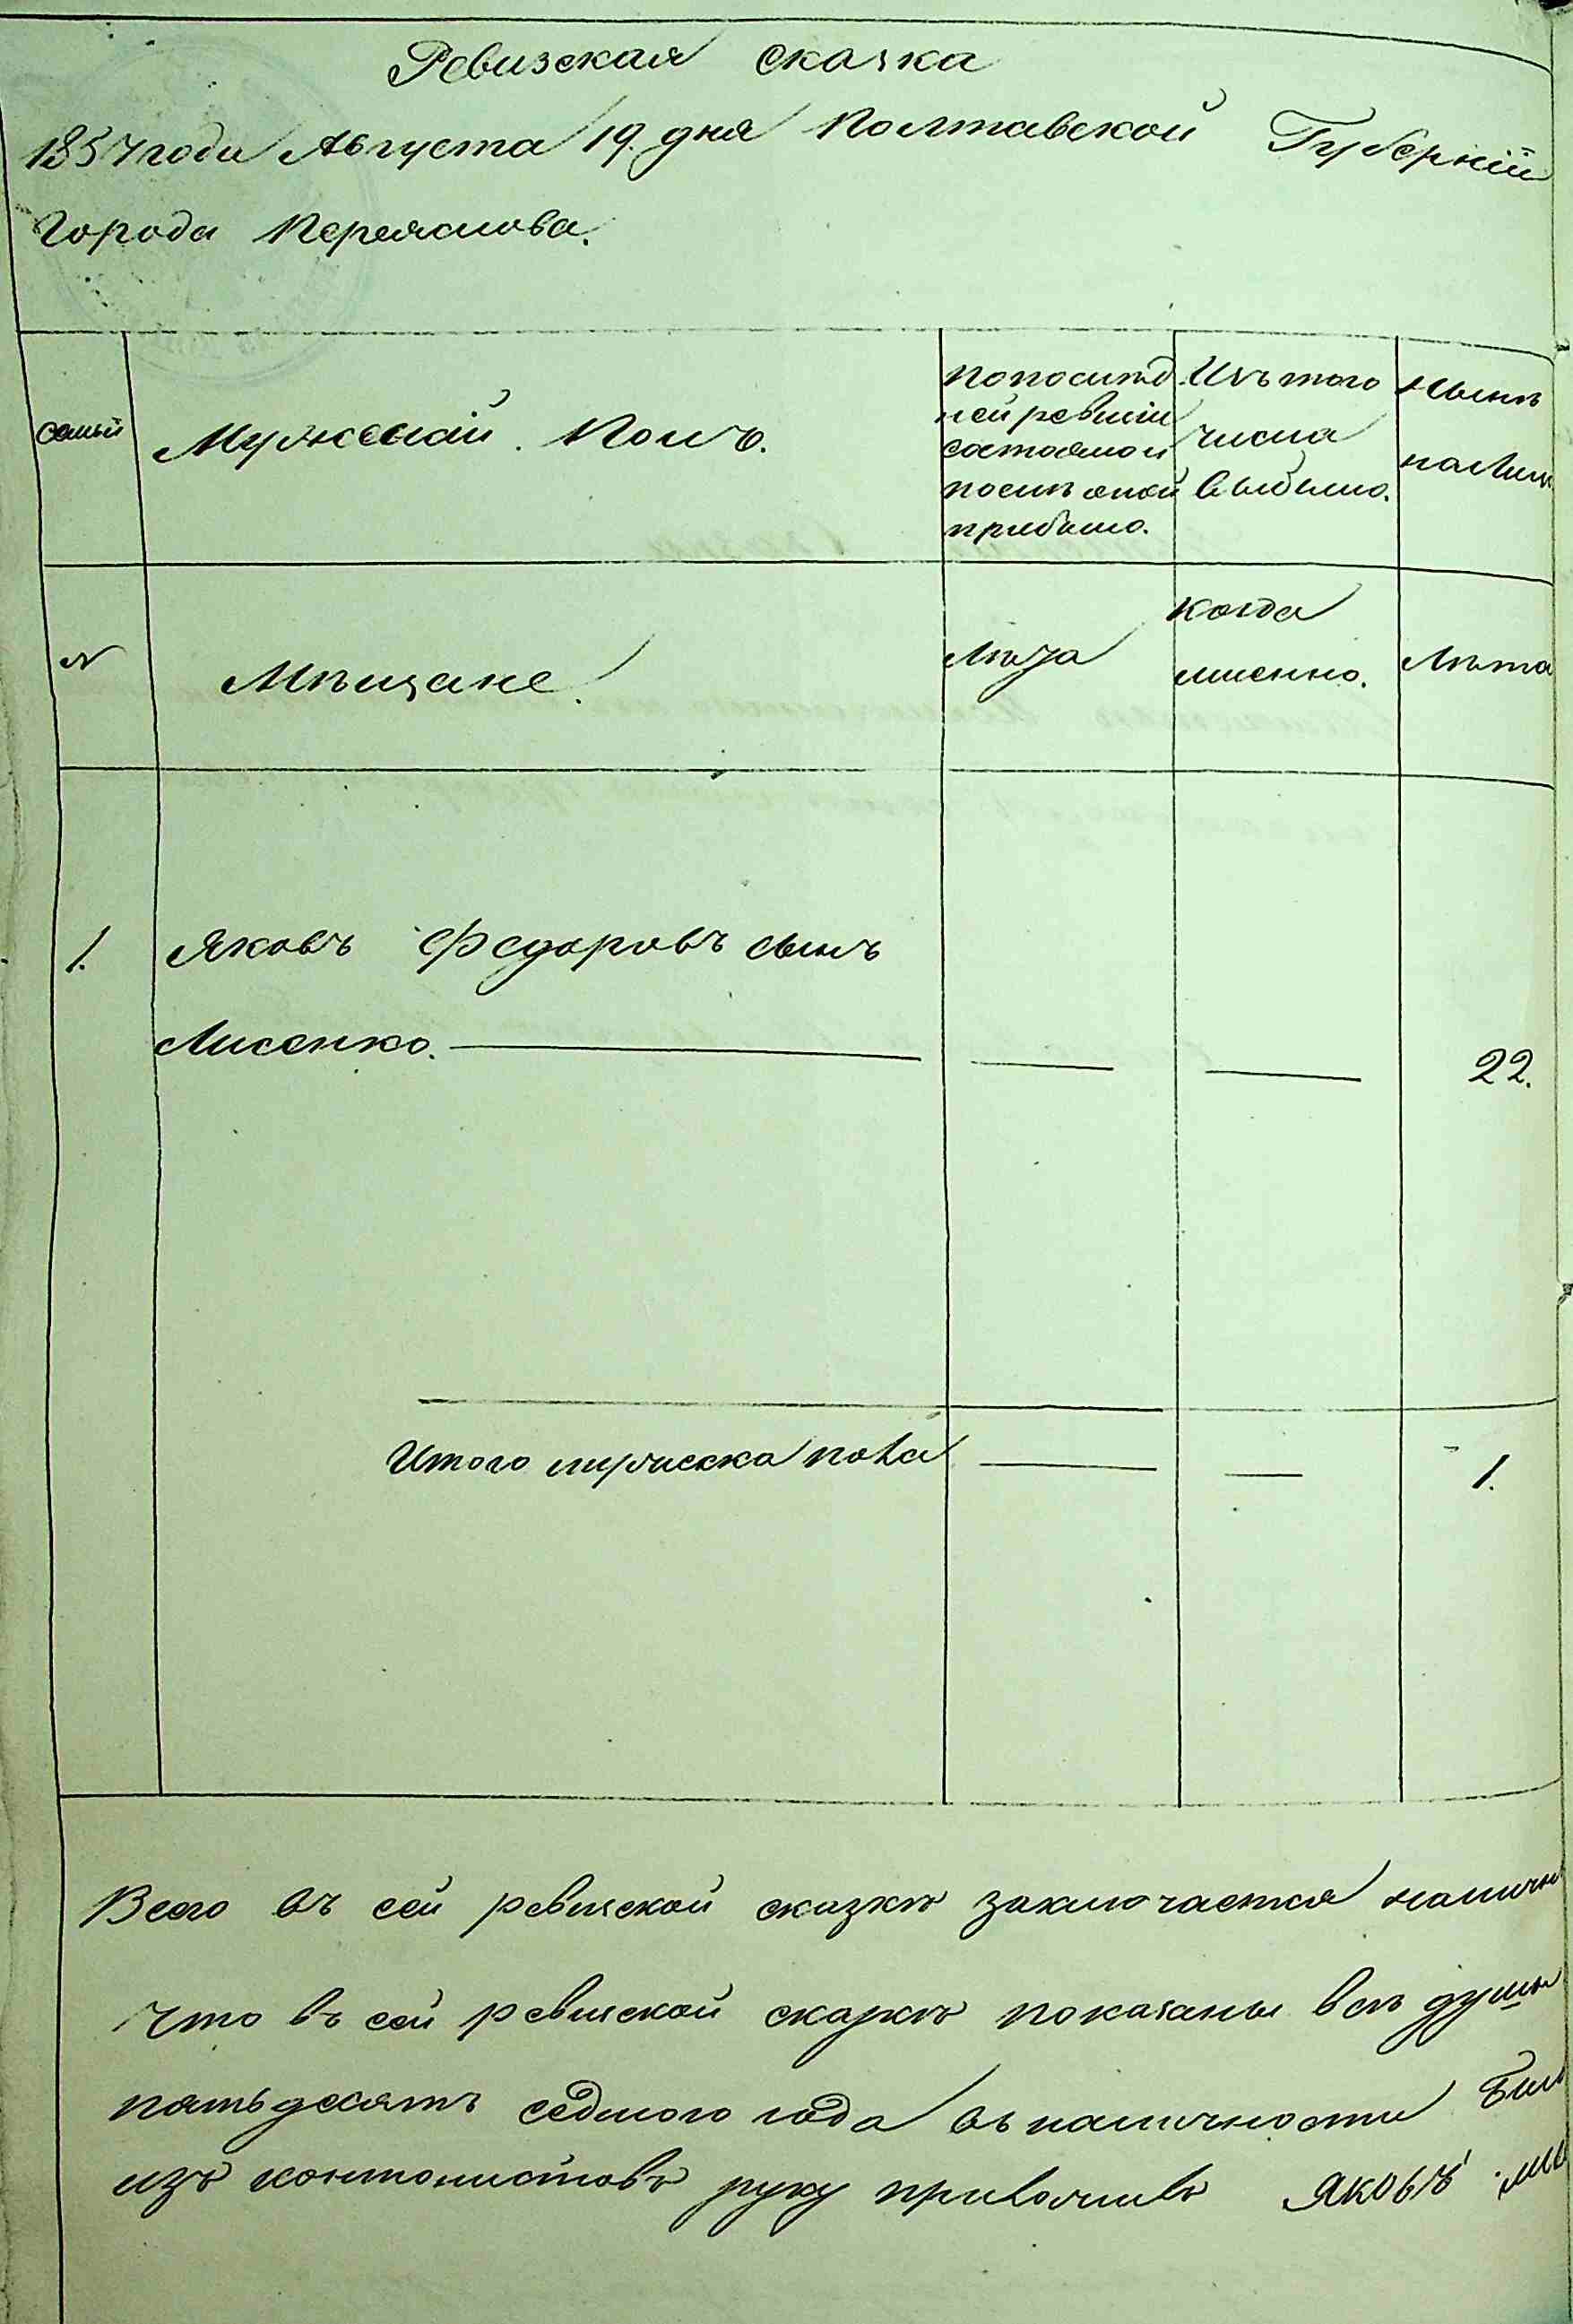 Ревизская сказка
1857 года Августа 19. дня Полтавской Губерніи
Города Переяслова.
семьи
Мужескій Полъ.
По послѣд
ней ревизіи
состояло и
послѣ оной
прибыло.
Изъ того
числа
выбыло.
Нынѣ
на лицо
№
Мѣщане.
Лѣта
Когда
именно.
Лѣта
1.
Яковъ Федоровъ сынъ
Лисенко.
22.
Итого мужеска пола
1.
Всего въ сей ревизской сказкѣ заключается наличн
что въ сей ревизской сказкѣ показаны всѣ душы
пятьдесятъ седмого года въ наличности
изъ контонистовъ руку приложилъ Яковъ